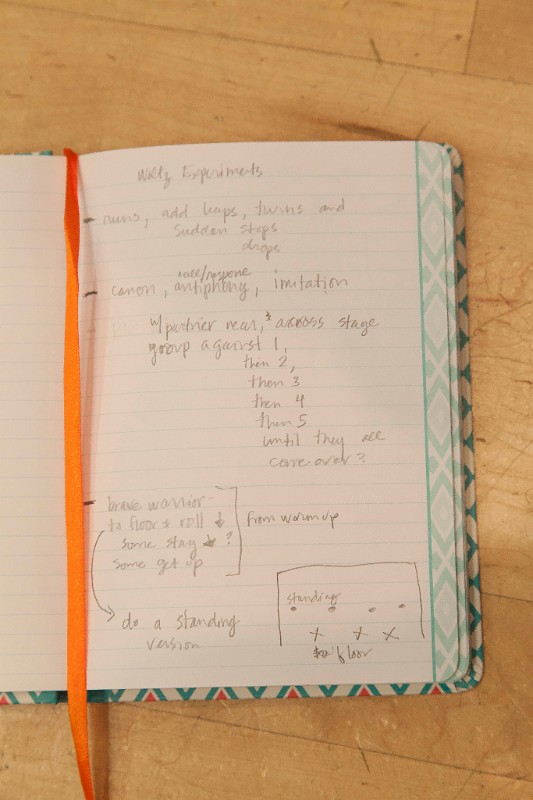 Waltz Experiments
- runs, add leaps, turns and
sudden stops
drops
call/response
- canon, antiphony, imitation
w/partner near, & across stage
group against 1,
then 2,
then 3
then 4
then 5
until they all
come over?
- brave warrior -
to floor & roll ↓
some stay ↓ ?
some get up
from warmup
do a standing
version
standing
x x x
floor